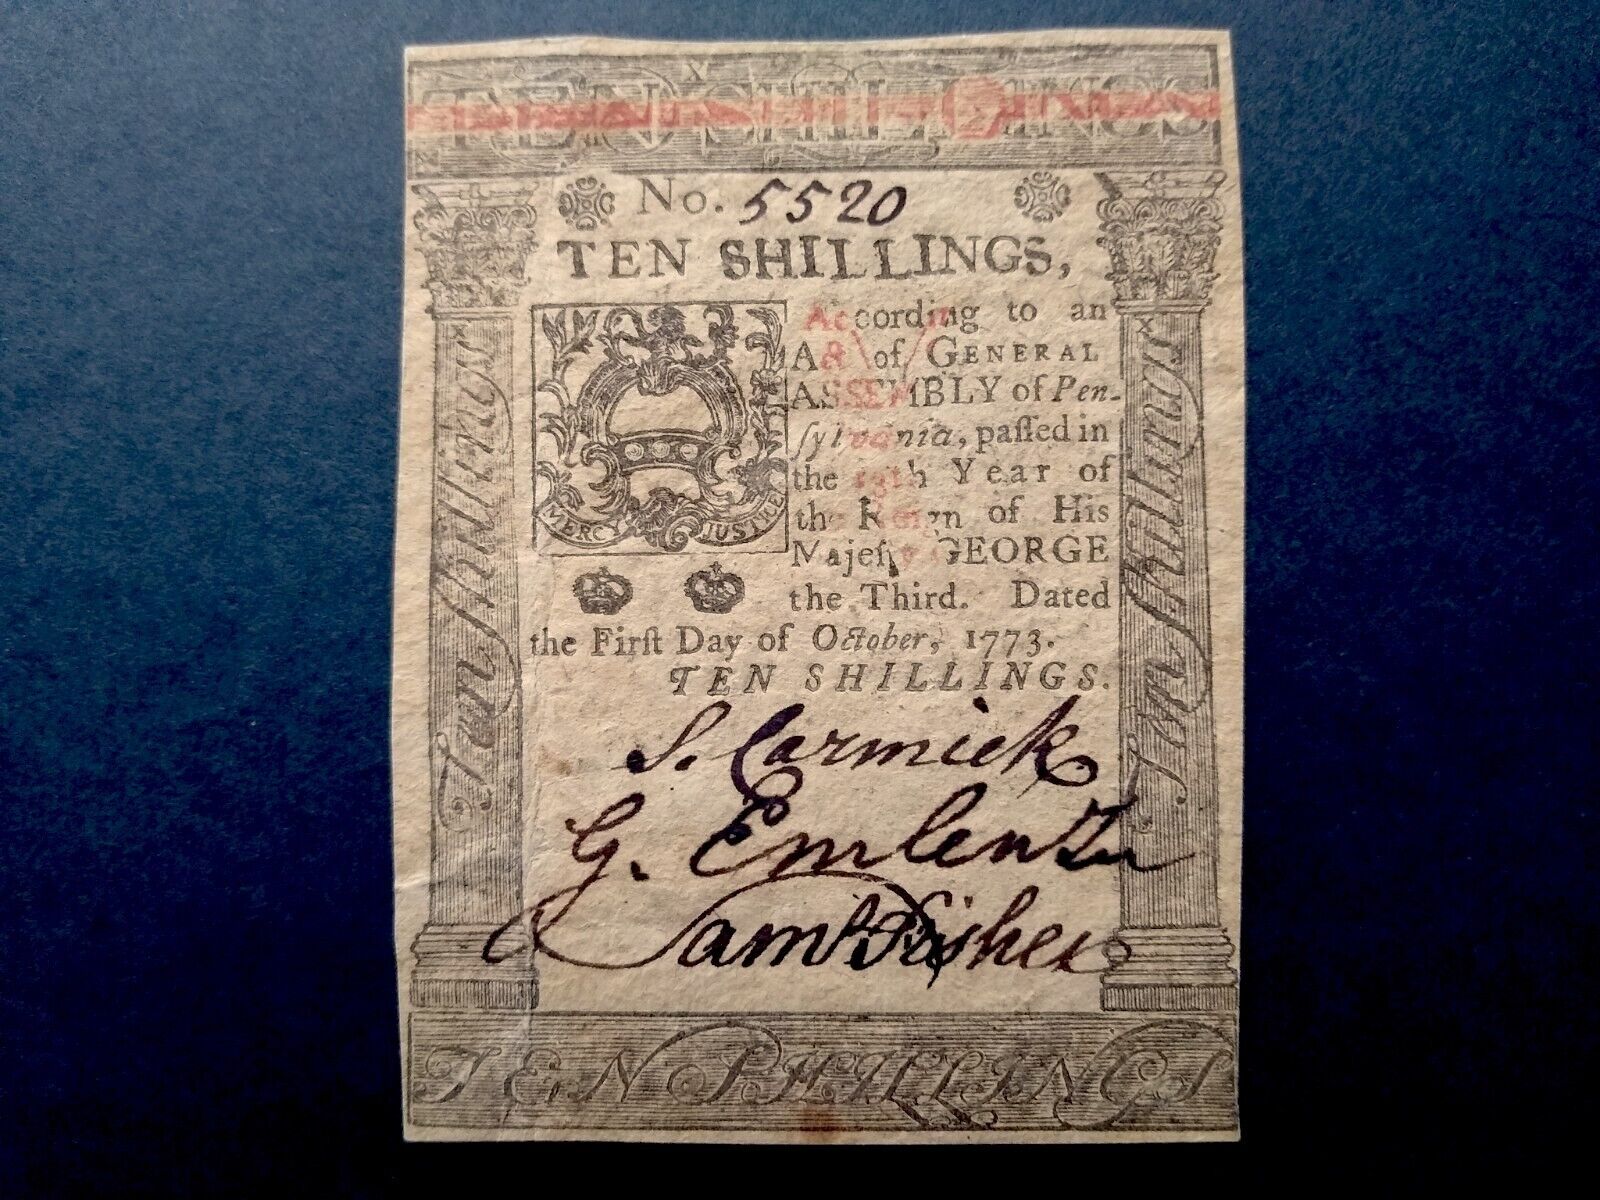 TEN SHILLINGS
No. 5520
TEN SHILLINGS,
According to an
Act of GENERAL
ASSEMBLY of Pen-
ſylvania, paſſed in
the 13th Year of
the Reign of His
Majeſty GEORGE
the Third. Dated
the Firſt Day of October, 1773.
TEN SHILLINGS.
MERCY JUSTICE
Ten Shillings
Ten Shillings
S. Carmick
G. Emlen Jur
Saml Fisher
TEN SHILLINGS